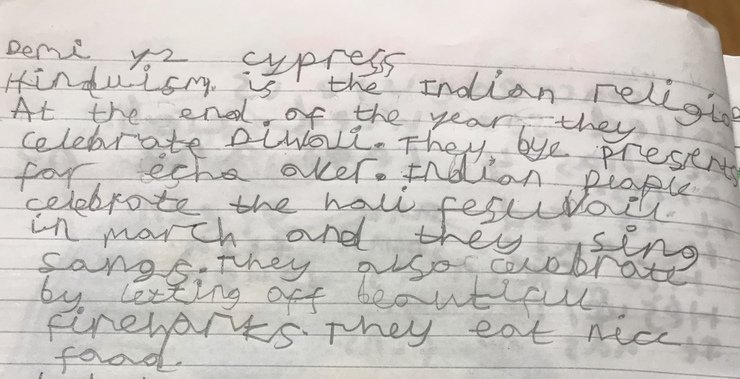 Demi y2 cypress
Hinduism is the Indian religio
At the end of the year they
celebrate Diwali. They bye presents
for echa oker. Indian people
celebrate the holi fesuvail
in march and they sing
sangs. They also celebrate
by letting off beautiful
fireworks. They eat nice
food.